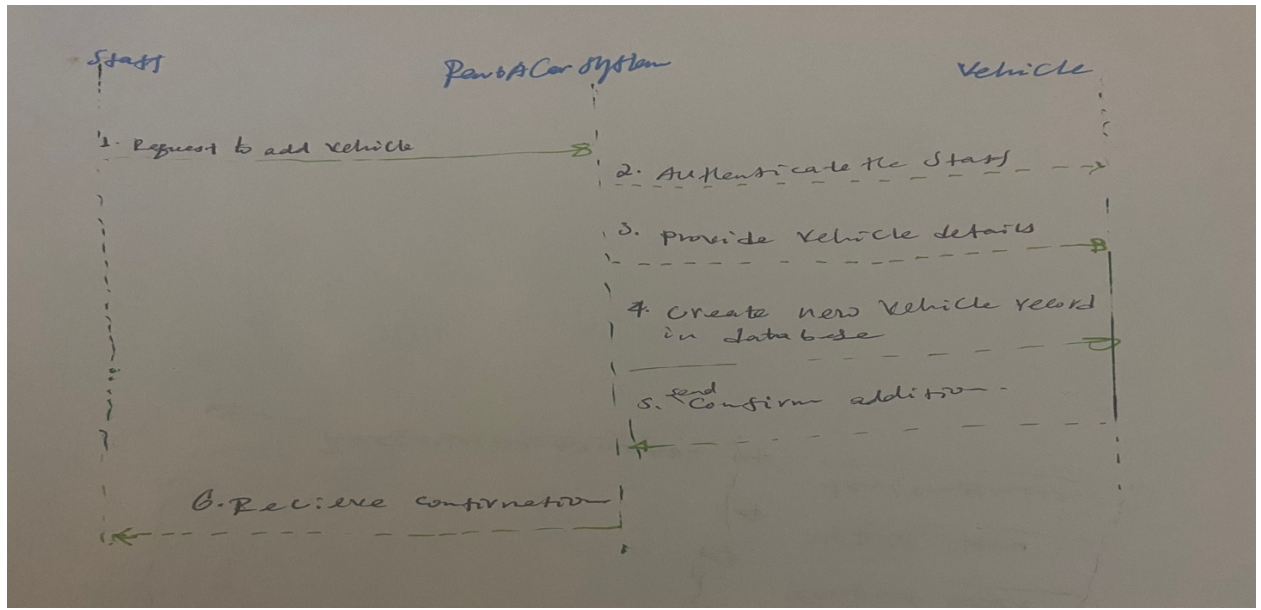 Staff
RentACar System
Vehicle
1. Request to add vehicle
2. Authenticate the Staff
3. Provide vehicle details
4. Create new vehicle record
in database
send
5. Confirm addition.
6. Recieve confirmation